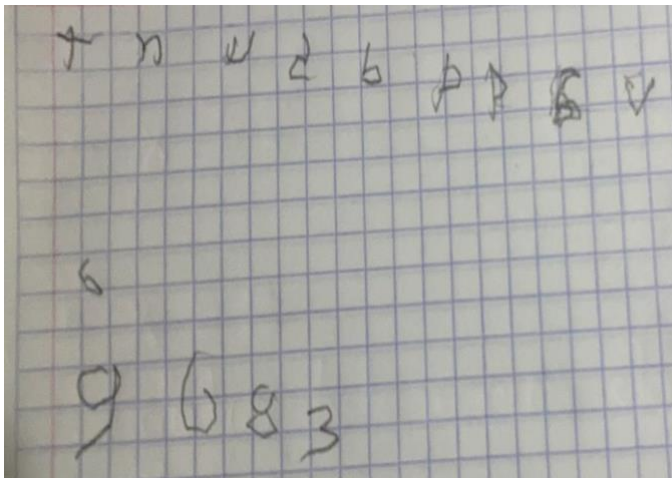 t n u d b p p g v
6
9 6 8 3